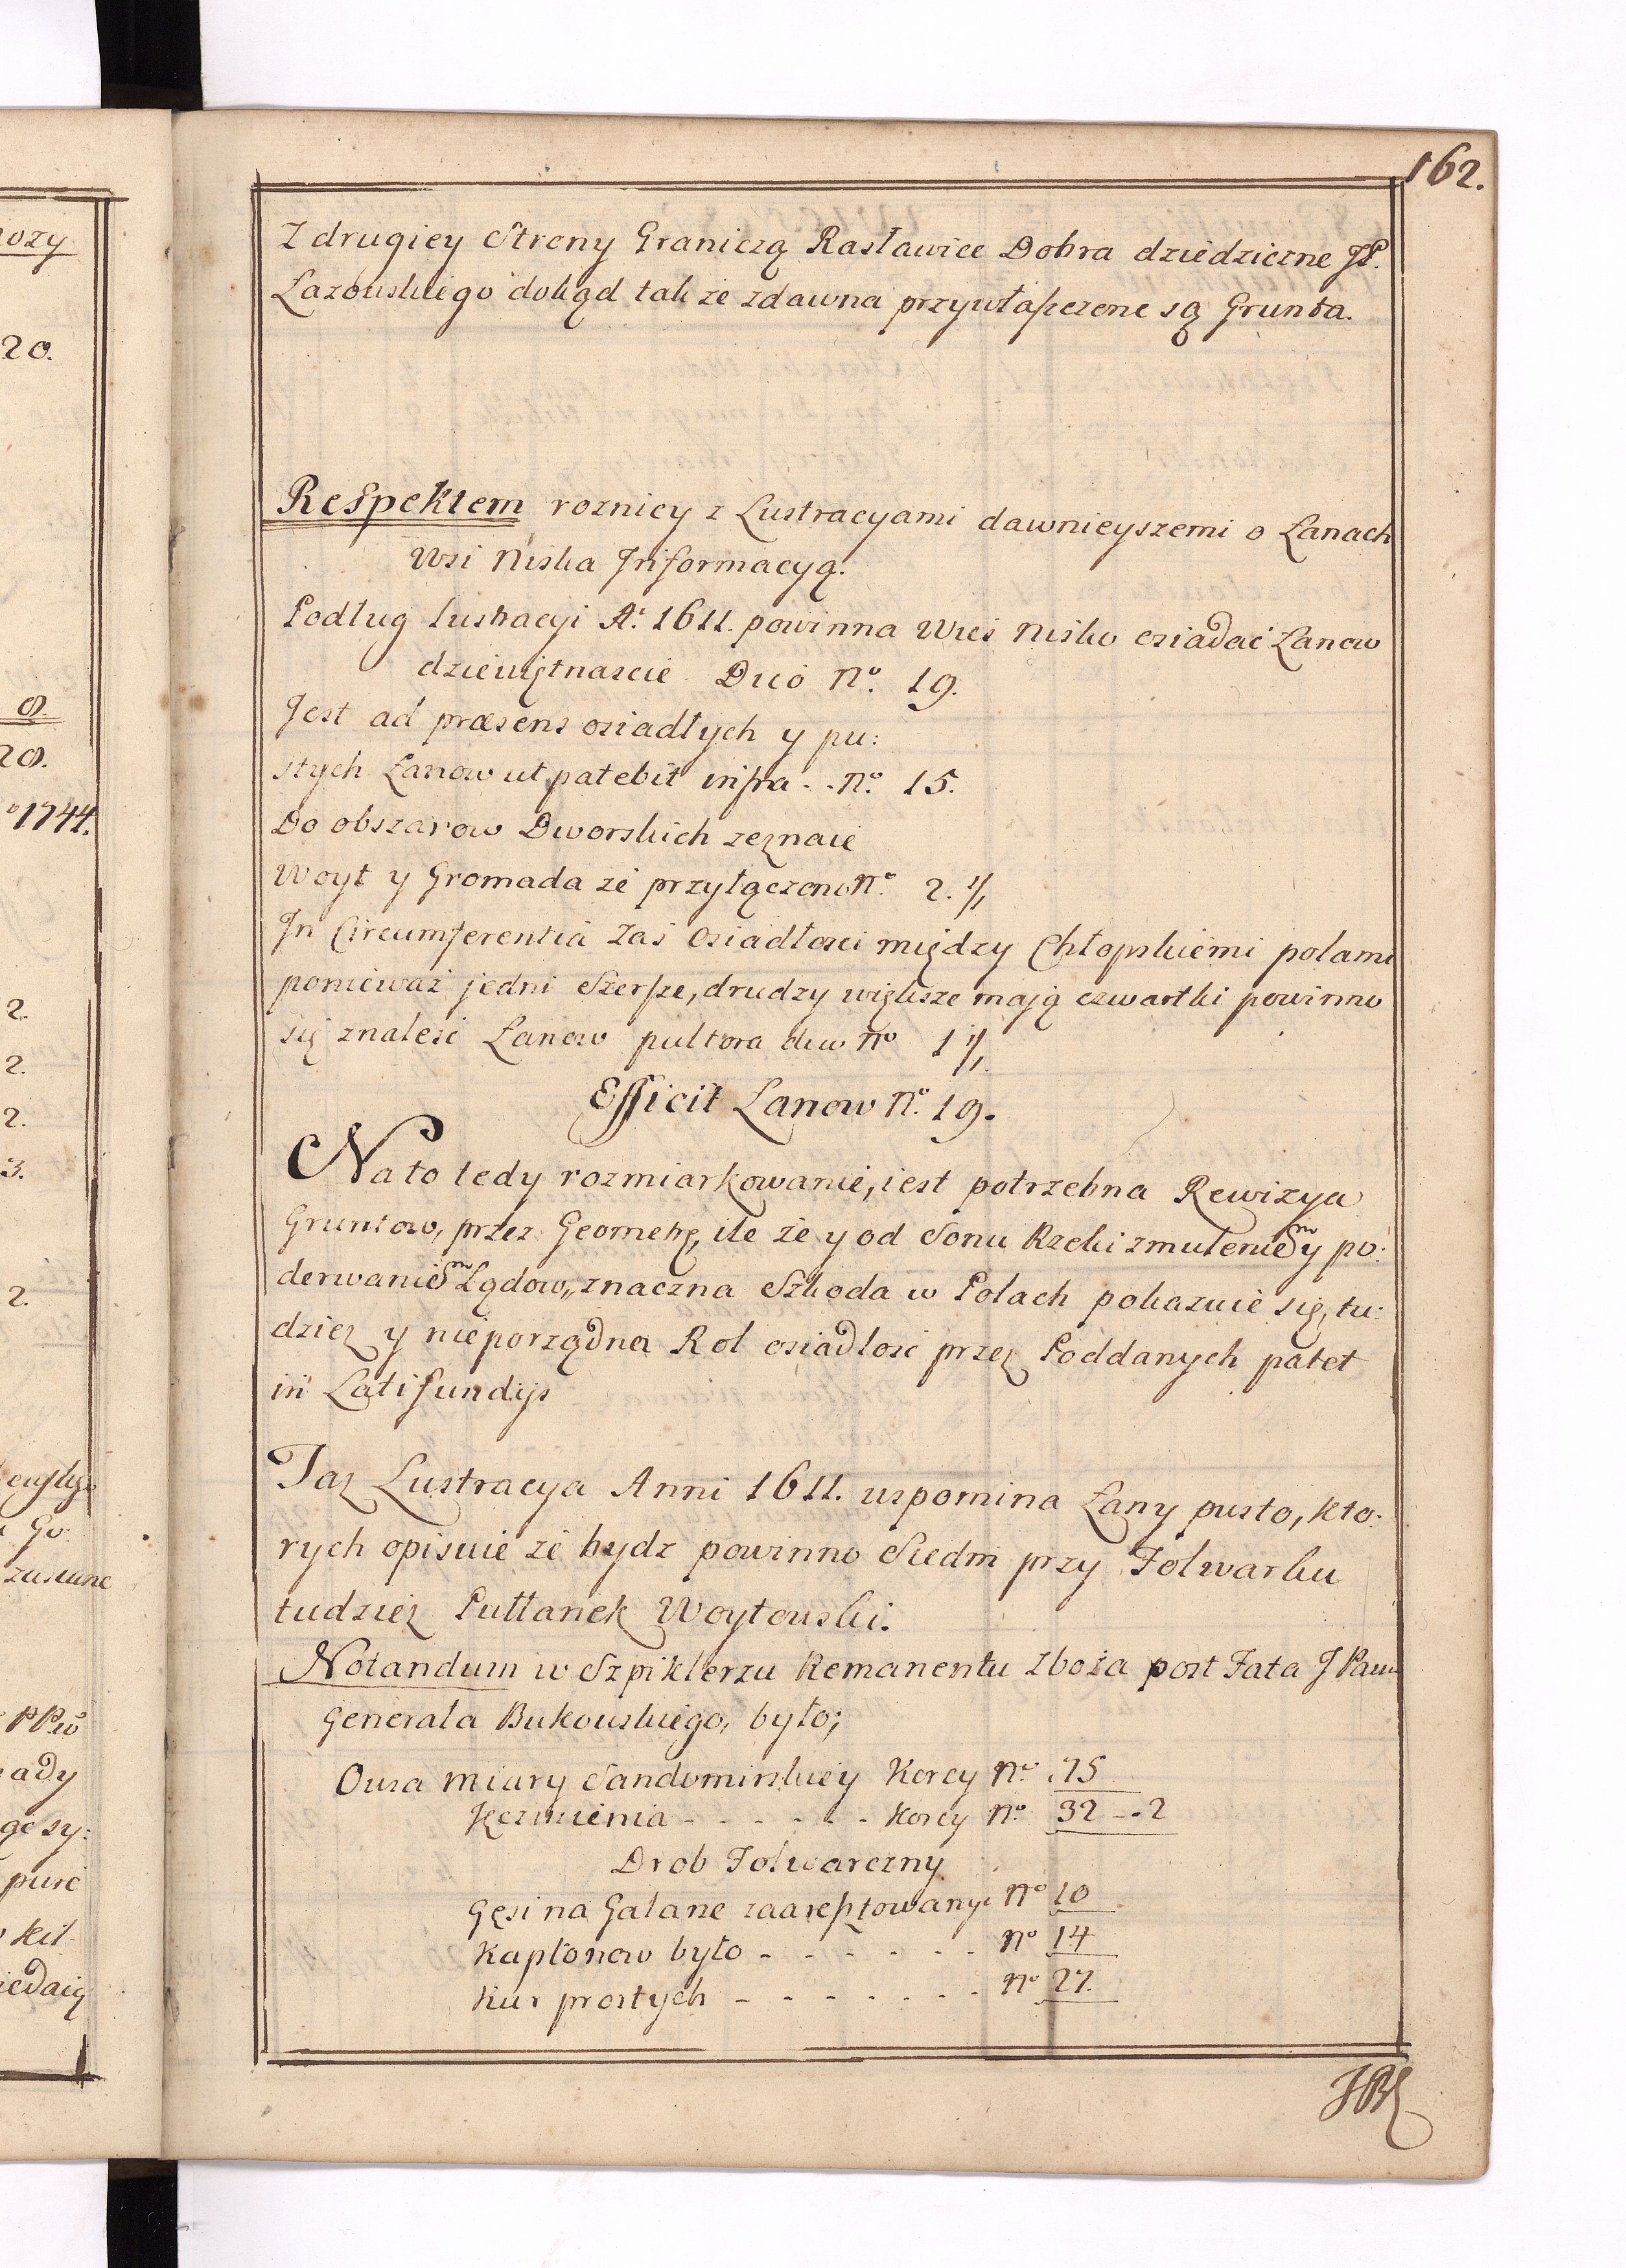 162.
Z drugiey Strony Graniczą Rasławice Dobra dziedziczne JP.
Łazowskiego dokąd tak ze zdawna przywłaszczone są Grunta.
Respektem roznicy z Lustracyami dawnieyszemi o Łanach
Wsi Niska Informacyą.
Podług lustracyi A: 1611. powinna Wieś Nisko osiadać Łanow
dziewiętnascie Duo No. 19.
Jest ad præsens osiadłych y pu:
stych Łanow ut patebit infra . . No. 15.
Do obszarow Dworskich zeznaie
Woyt y Gromada ze przyłączono No. 2. 1/1
In Circumferentia Zaś Osiadłosci między Chłopskiemi polami
ponieważ jedni Szersze, drudzy większe mają czwartki powinno
się znaleść Łanow pultora duo No 1 1/1.
Efficit Łanow No. 19.
Na to tedy rozmiarkowanie, iest potrzebna Rewizya
Gruntow, przez Geometrę, ile że y od Sonu Rzeki zmuleniem y po:
derwaniem Lądow,, znaczna Szkoda w Polach pokazuie się, tu:
dziez y nieporządna Rol osiadłość przez Poddanych patet
in Latifundijs
Taz Lustracya Anni 1611. wspomina Łany pusto, kto:
rych opisuie że bydz powinno Siedm przy Folwarku
tudziez Pułłanek Woytowski.
Notandum w Szpiklerzu Remanentu Zboża post Fata J Pana
Generała Bukowskiego, było;
Owsa miary Sandomirskiey Korcy No. 75
Jęczmienia - - - - - - Korcy No. 32 - . 2
Drob Folwarczny
Gęsi na Galane zaareptowanych No 10
Kapłonow było - - - - - - No 14
Kur prostych - - - - - - - No 27.